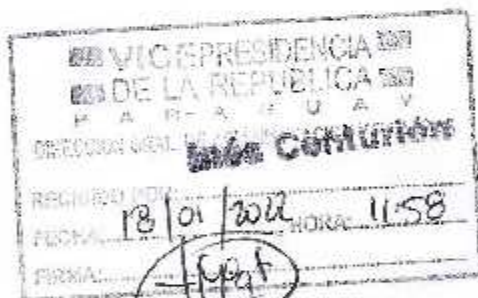 VICEPRESIDENCIA
DE LA REPUBLICA
PARAGUAY
DIRECCION GRAL. DE
Inés Centurión
RECIBIDO POR:
FECHA: 18/01/2022 HORA: 11:58
FIRMA: